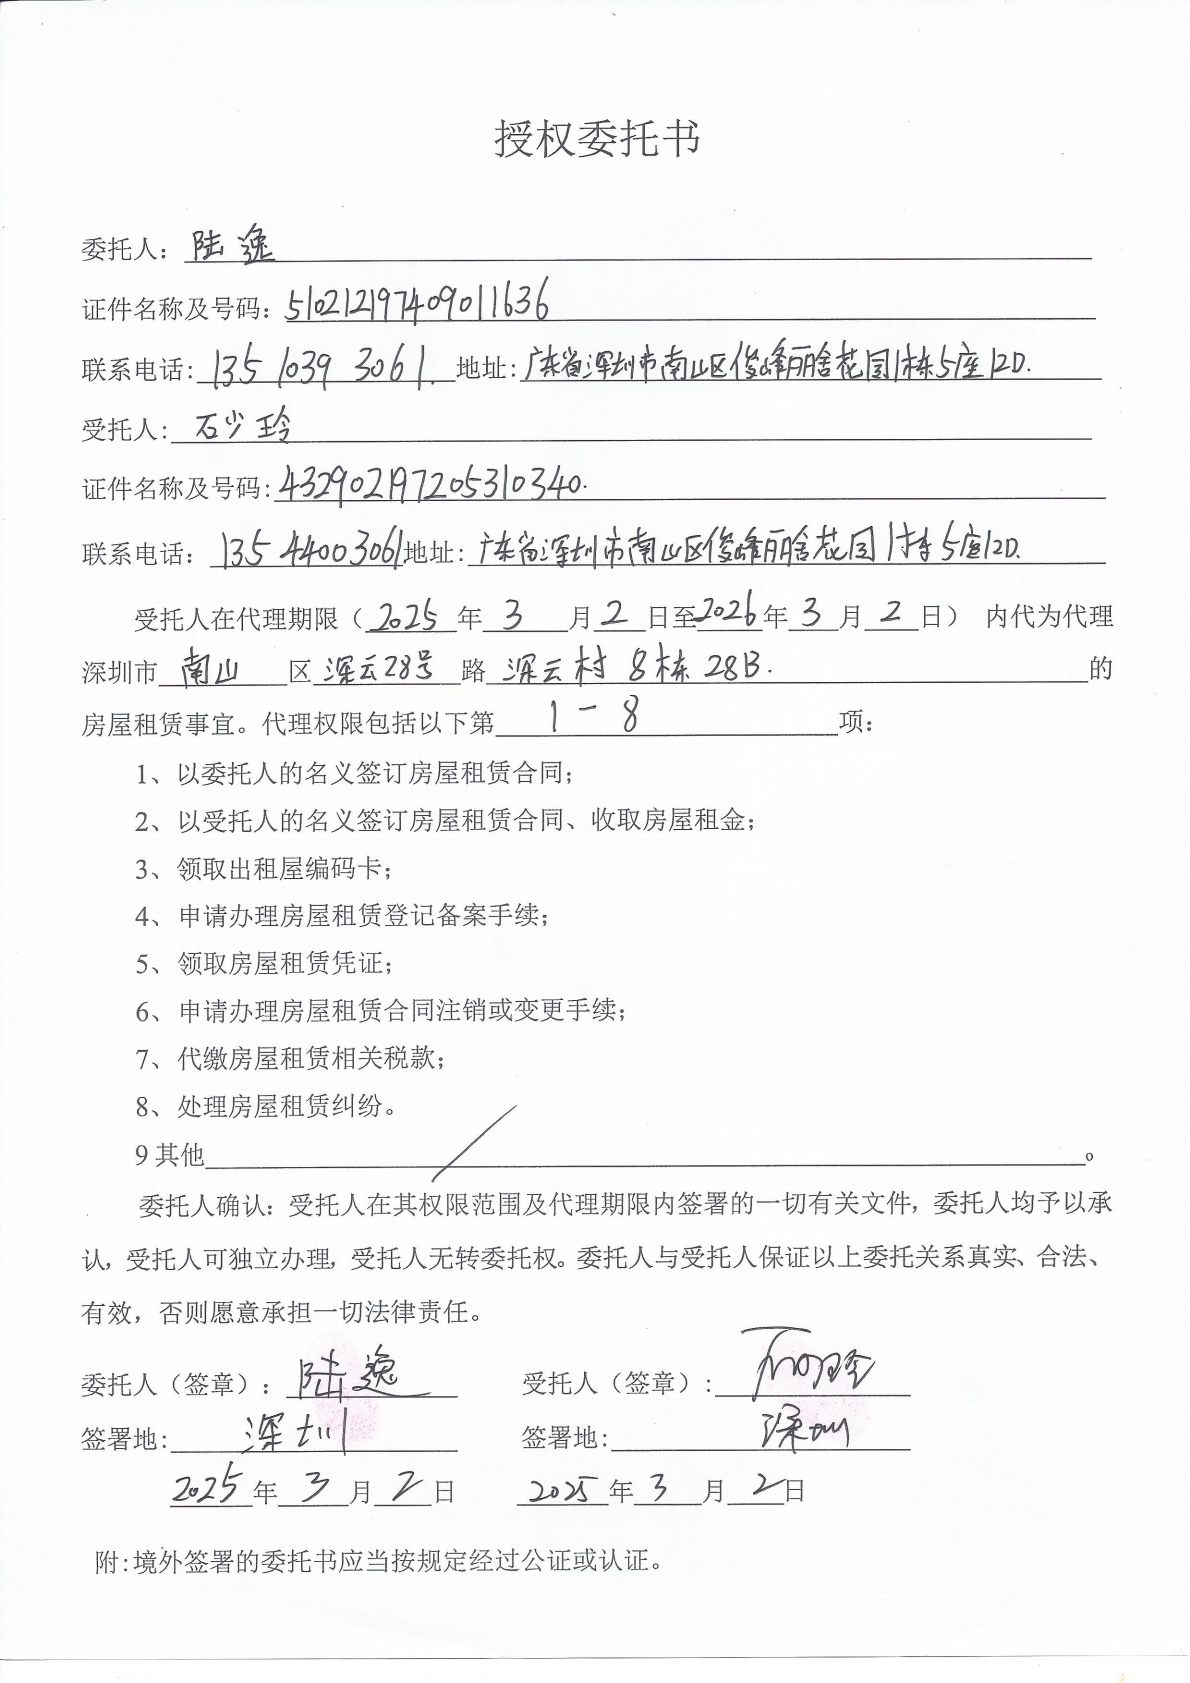 授权委托书
委托人：陆逸
证件名称及号码：510212197409011636
联系电话：135 1039 3061. 地址：广东省深圳市南山区俊峰丽舍花园1栋5座12D.
受托人：石少玲
证件名称及号码：432902197205310340.
联系电话：135 44003061地址：广东省深圳市南山区俊峰丽舍花园1栋5座12D.
受托人在代理期限（2025年3月2日至2026年3月2日） 内代为代理
深圳市南山区深云28号路深云村8栋28B.的
房屋租赁事宜。代理权限包括以下第1-8项：
1、以委托人的名义签订房屋租赁合同；
2、以受托人的名义签订房屋租赁合同、收取房屋租金；
3、领取出租屋编码卡；
4、申请办理房屋租赁登记备案手续；
5、领取房屋租赁凭证；
6、申请办理房屋租赁合同注销或变更手续；
7、代缴房屋租赁相关税款；
8、处理房屋租赁纠纷。
9其他/。
委托人确认：受托人在其权限范围及代理期限内签署的一切有关文件，委托人均予以承
认，受托人可独立办理，受托人无转委托权。委托人与受托人保证以上委托关系真实、合法、
有效，否则愿意承担一切法律责任。
委托人（签章）：陆逸 受托人（签章）：石少玲
签署地：深圳 签署地：深圳
2025年3月2日 2025年3月2日
附：境外签署的委托书应当按规定经过公证或认证。